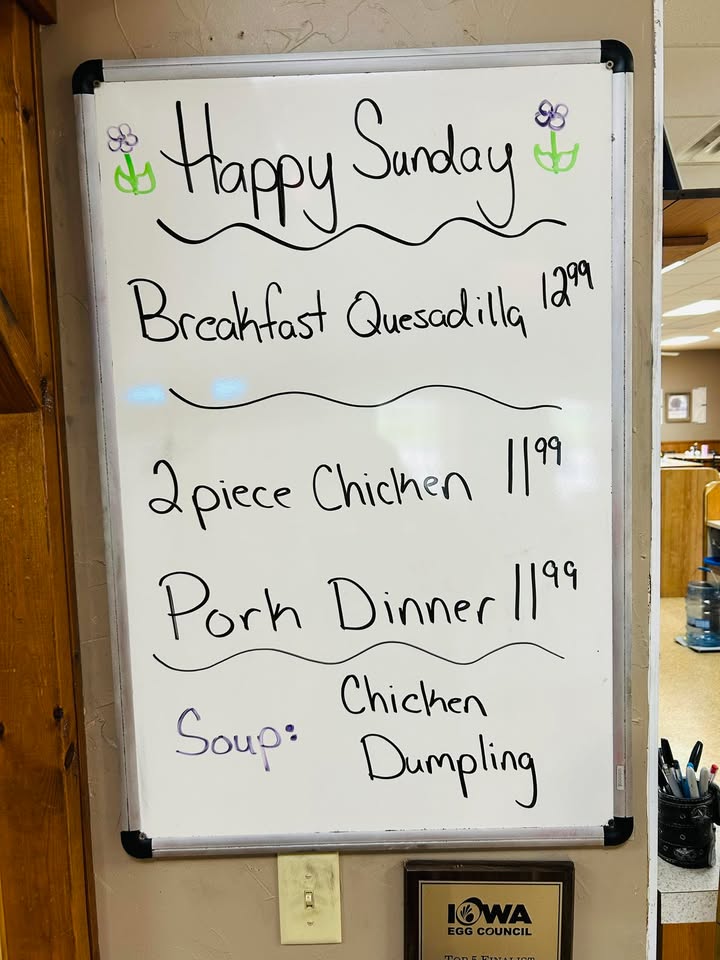 Happy Sunday
Breakfast Quesadilla 12.99
2 piece Chicken 11.99
Pork Dinner 11.99
Soup: Chicken
Dumpling
IOWA
EGG COUNCIL
TOP 5 FINALIST